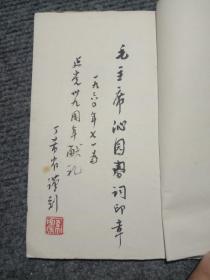 毛主席沁园春词印章
一九六〇年七一为
建党卅九周年献礼
丁吉甫谨刻